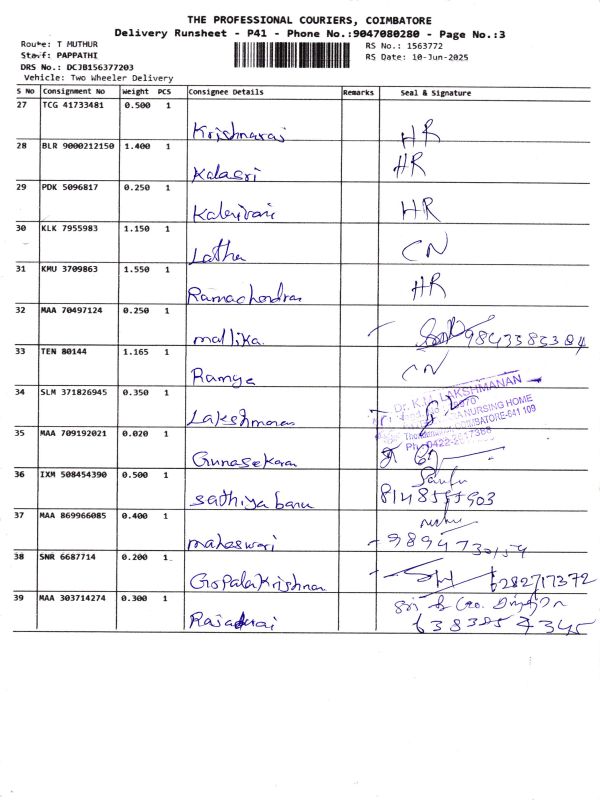 THE PROFESSIONAL COURIERS, COIMBATORE
Delivery Runsheet - P41 - Phone No.:9047080280 - Page No.:3
Route: T MUTHUR
Staff: PAPPATHI
DRS No.: DCJB156377203
Vehicle: Two Wheeler Delivery
RS No.: 1563772
RS Date: 10-Jun-2025
S No Consignment No Weight PCS Consignee Details Remarks Seal & Signature
27 TCG 41733481 0.500 1 Krishnaraj HR
28 BLR 9000212150 1.400 1 Kalasri HR
29 PDK 5096817 0.250 1 HR
30 KLK 7955983 1.150 1 Latha CN
31 KMU 3709863 1.550 1 Ramachandran HR
32 MAA 70497124 0.250 1 mallika 9843383384
33 TEN 80144 1.165 1 Ramya CN
34 SLM 371826945 0.350 1 Lakshmanan
Dr. K.U. LAKSHMANAN
NURSING HOME
COIMBATORE-641 109
35 MAA 709192021 0.020 1 Gunasekaran
36 IXM 508454390 0.500 1 sathiyabanu
37 MAA 869966085 0.400 1 maheswari 9894730154
38 SNR 6687714 0.200 1 GopalaKrishnan 6282717372
39 MAA 303714274 0.300 1 Rajadurai
6383854345